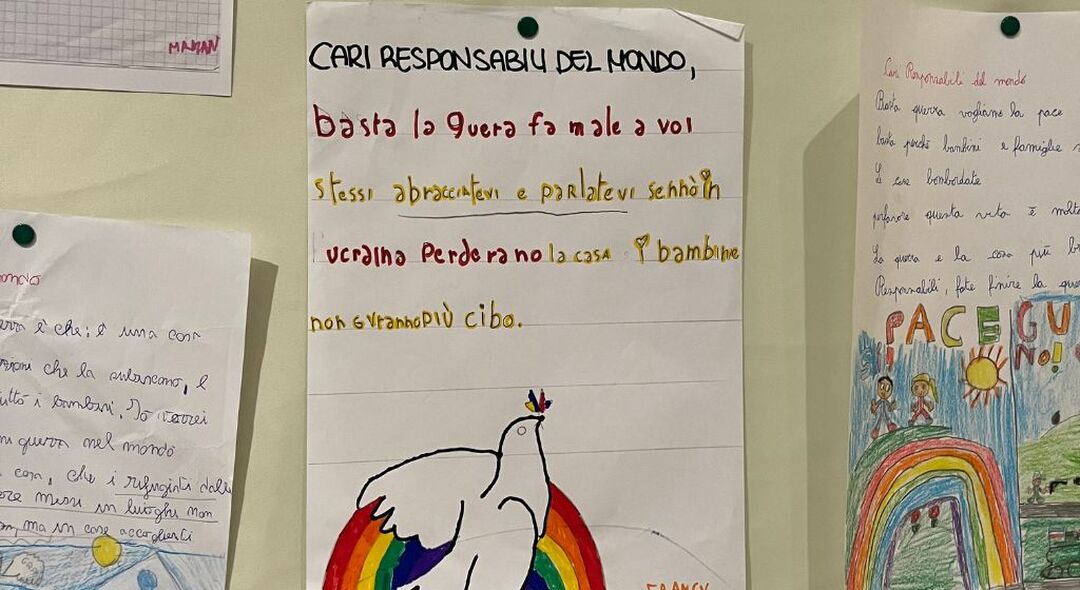 MANAN
CARI RESPONSABILI DEL MONDO,
basta la guera fa male a voi
stessi abracciatevi e parlatevi sennò in
ucraina perderano la casa i bambini e
non avranno più cibo.
è che: è una cosa
che la subiscono, e
i bambini. Io vorrei
guerra nel mondo
cosa, che i rifugiati dalle
messi in luoghi non
ma in case accoglienti
Cari Responsabili del mondo
Basta guerra vogliamo la pace
basta perchè bambini e famiglie
case bombordate
perfavore questa vita è molto
La guerra e la cosa più
Responsabili, fate finire la
PACE GU
NO!